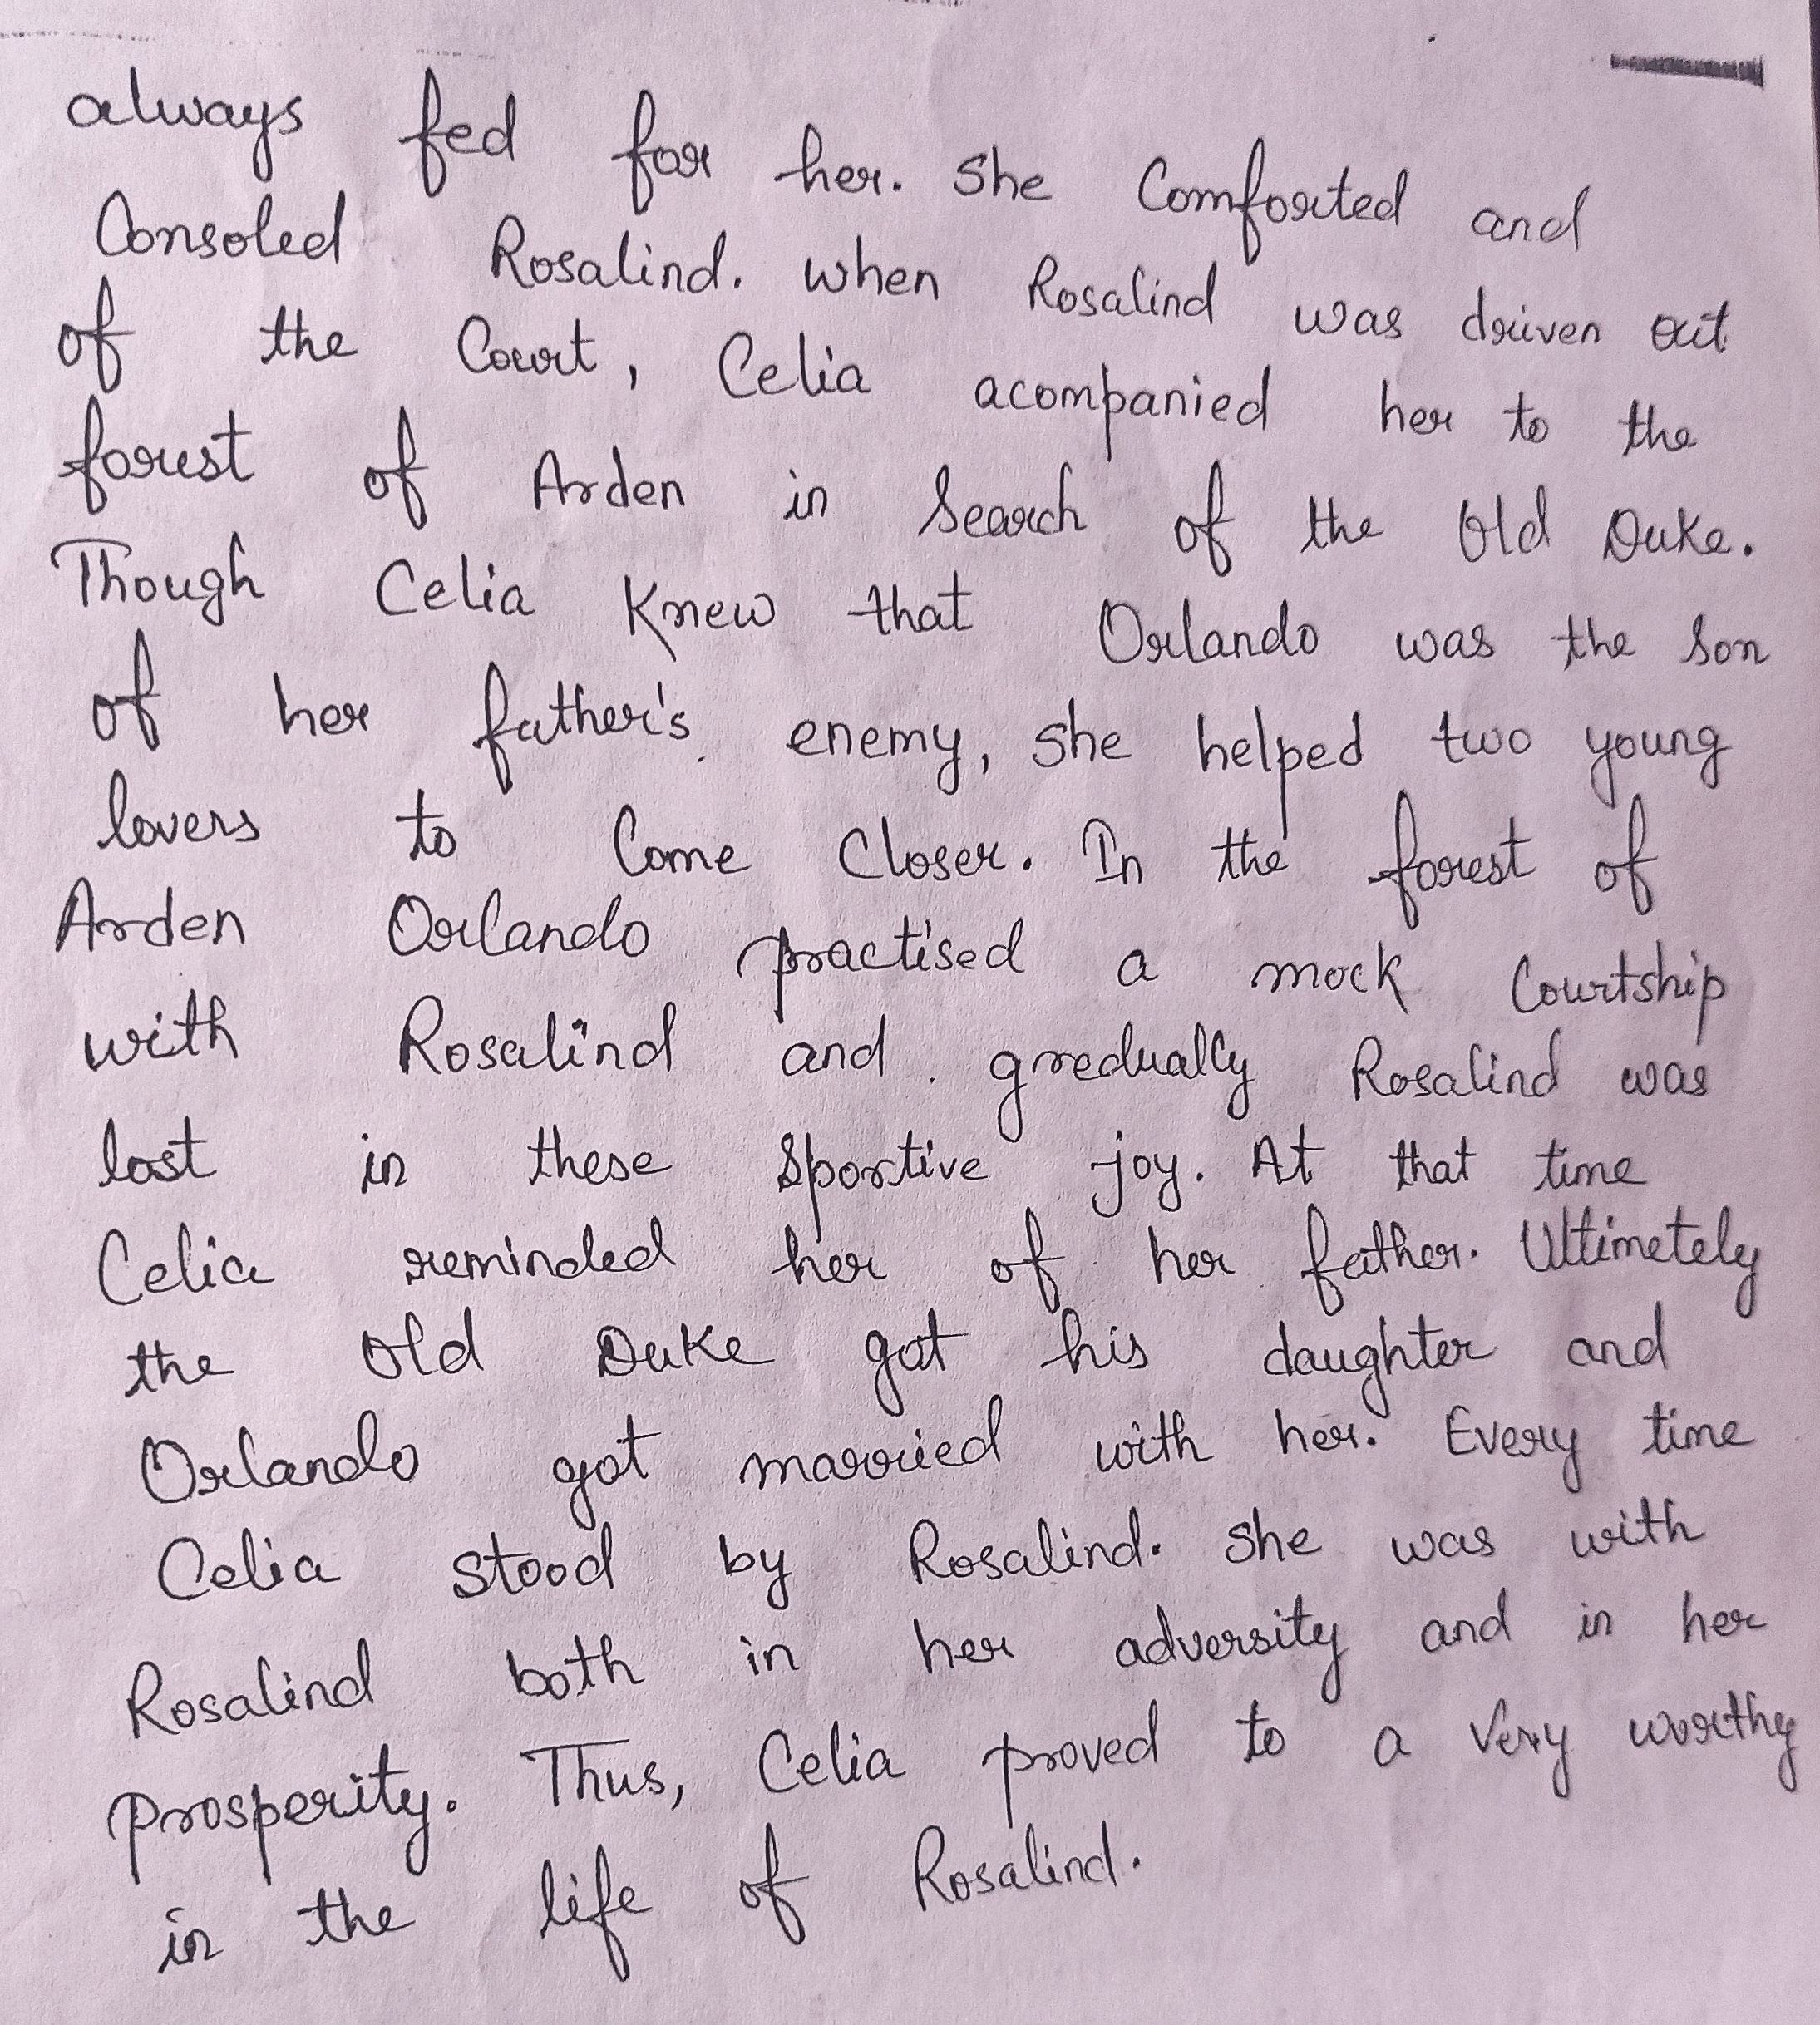 always fed for her. She Comforted and
Consoled Rosalind. when Rosalind was driven out
of the Court, Celia acompanied her to the
forest of Arden in Search of the Old Duke.
Though Celia Knew that Orlando was the Son
of her father's enemy, She helped two young
lovers to Come Closer. In the forest of
Arden Orlando practised a mock Courtship
with Rosalind and gredually Rosalind was
lost in these Sportive joy. At that time
Celia reminded her of her father. Ultimetely
the Old Duke got his daughter and
Orlando got married with her. Every time
Celia stood by Rosalind. She was with
Rosalind both in her adversity and in her
Prosperity. Thus, Celia proved to a very worthy
in the life of Rosalind.